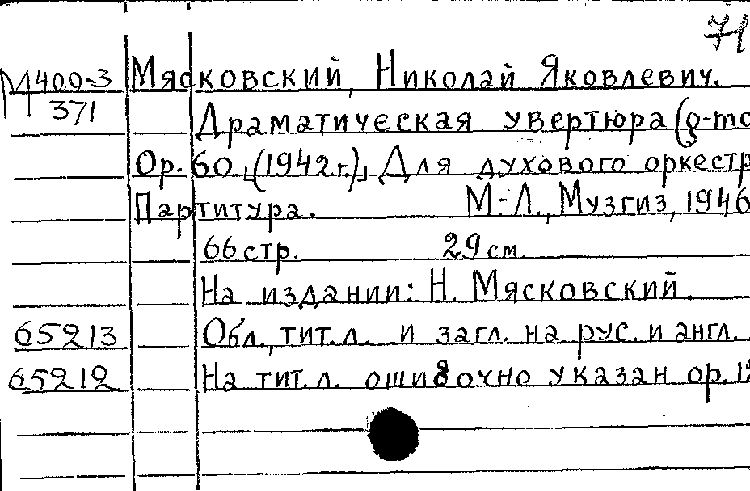 71
М 400-3 Мясковский, Николай Яковлевич.
371
Драматическая увертюра (g-mo
Ор. 60, (1942 г.), Для духового оркестр
Партитура. М-Л., Музгиз, 1946
66 стр. 29 см.
На издании: Н. Мясковский.
65213 Обл., тит. л. и загл. на рус. и англ.
65212 На тит. л. ошибочно указан ор. 12